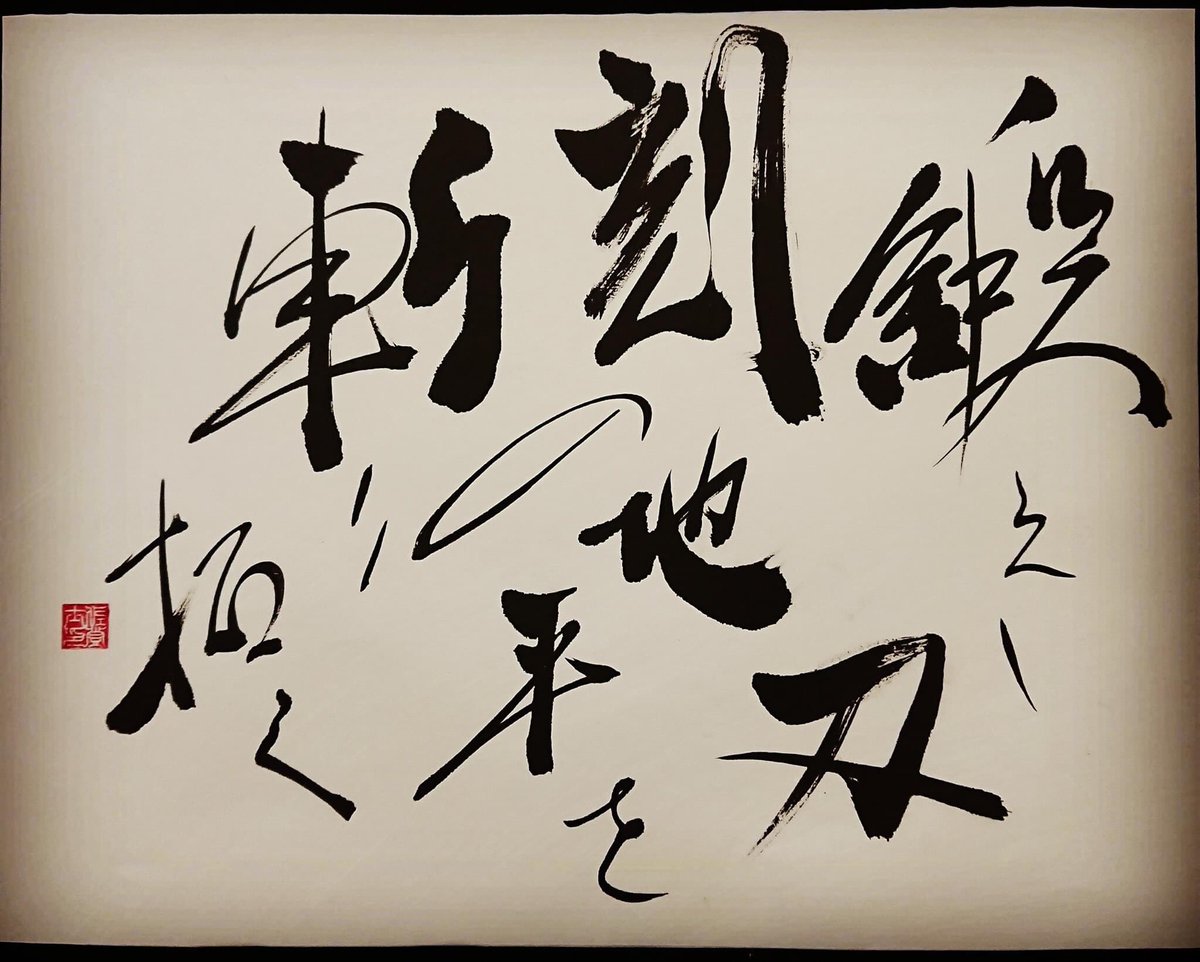 鍛えし刃
刻の地平を
斬り拓く